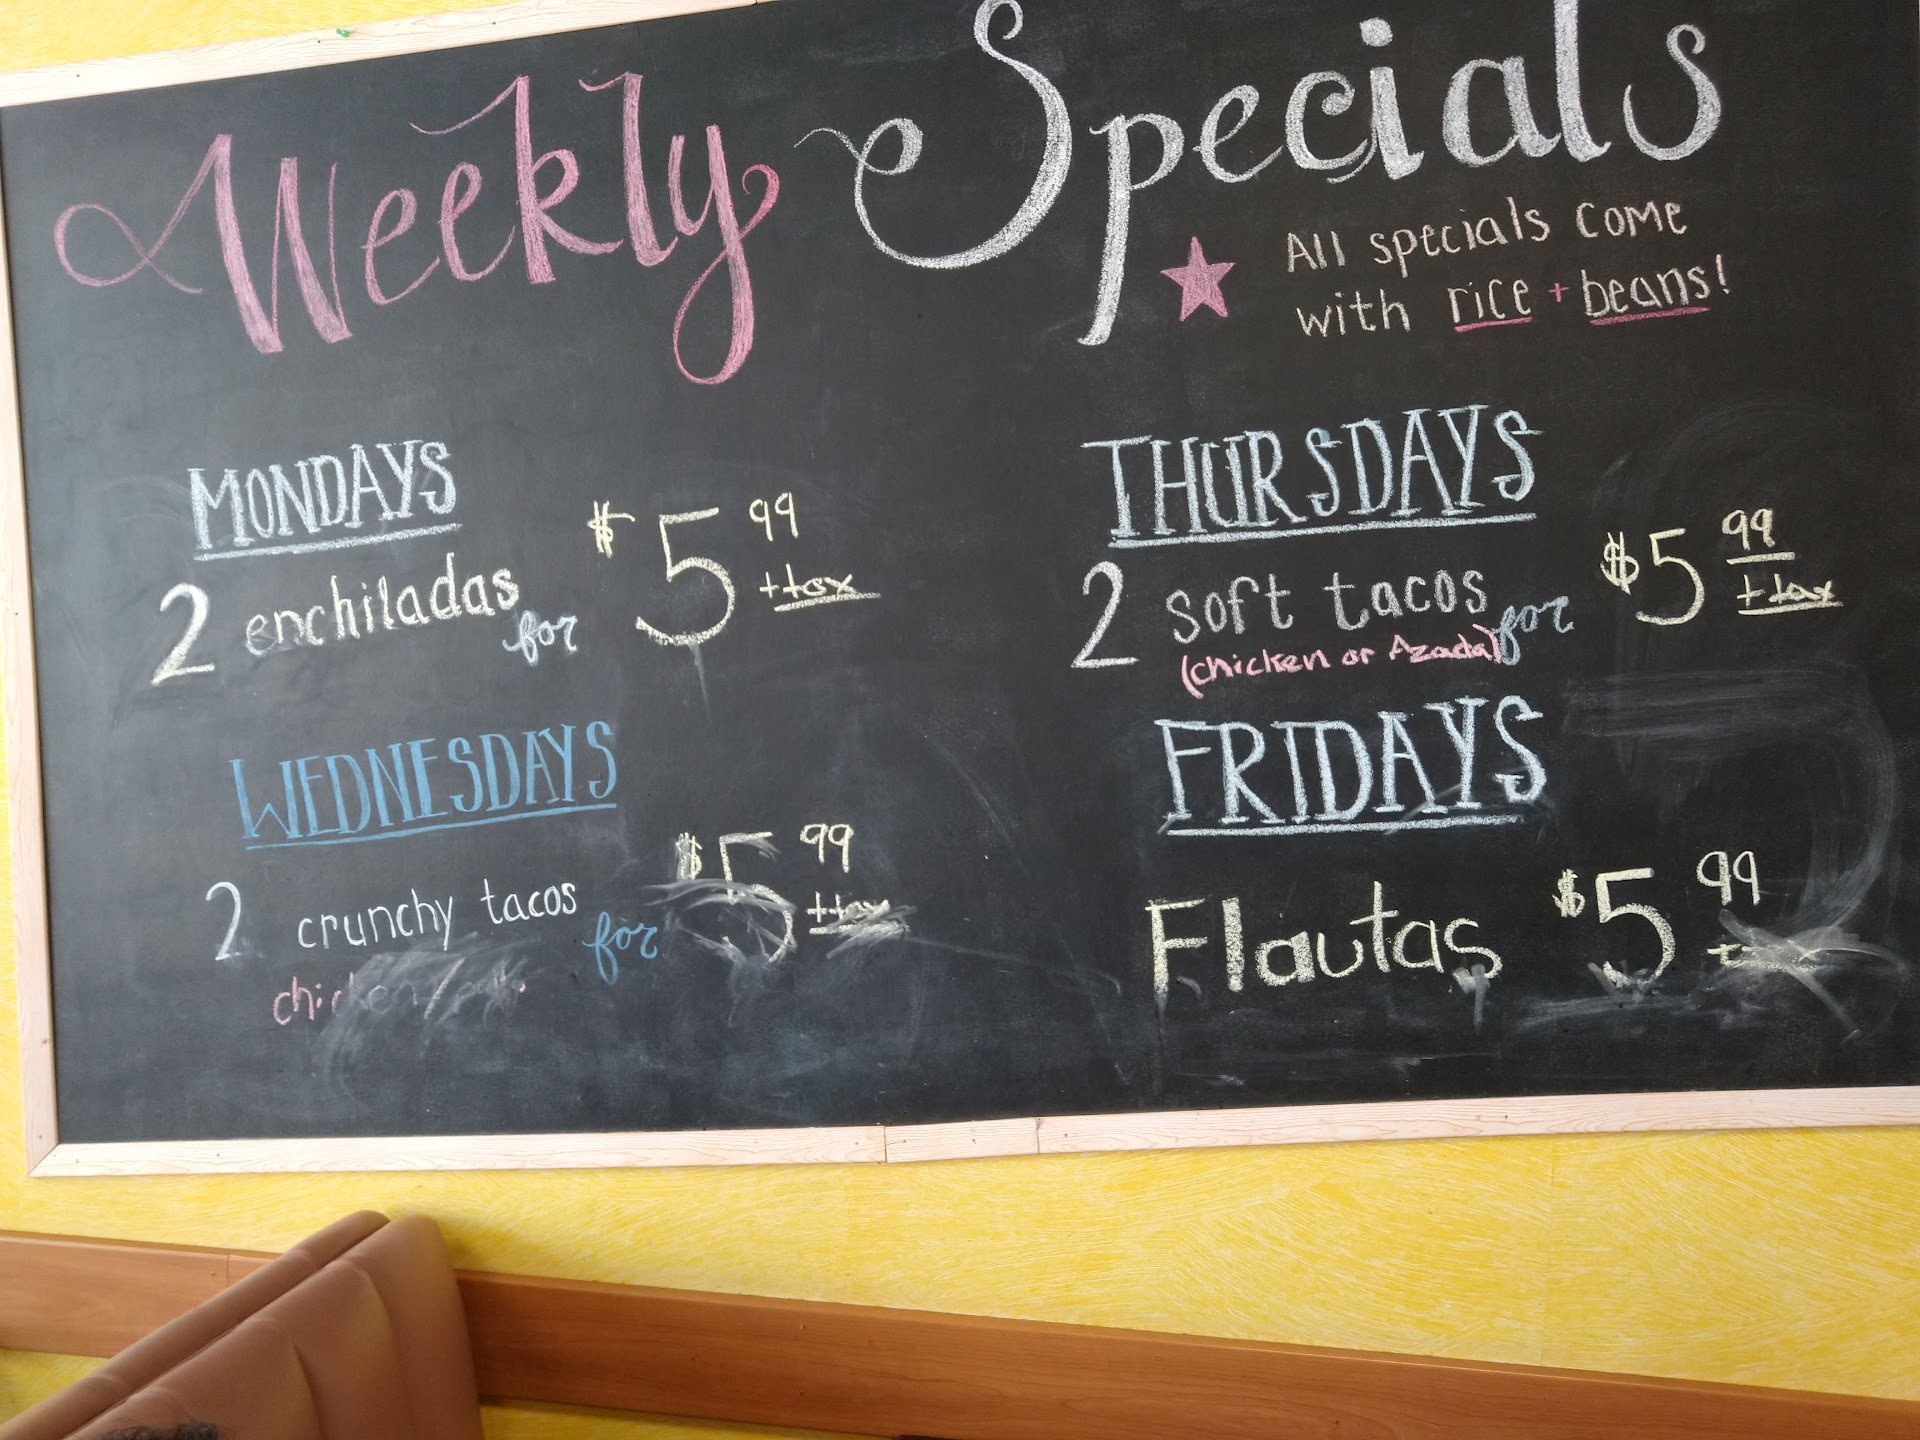 Weekly Specials
All specials come
with rice + beans!
MONDAYS
2 enchiladas for $5 99 + tax
WEDNESDAYS
2 crunchy tacos for $5 99 + tax
chicken/
THURSDAYS
2 soft tacos for $5 99 + tax
(chicken or Azada)
FRIDAYS
Flautas $5 99